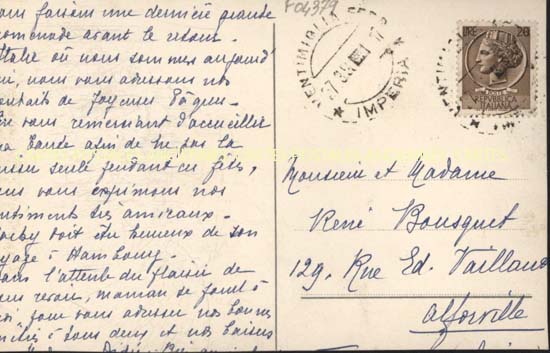 F04379
ous faisons une dernière grande
omenade avant le retour.
Italie où nous sommes aujourd'
ui, nous vous adressons nos
ouhaits de Joyeuses Pâques.
vous remerciant d'accueillir
ma tante afin de ne pas la
isser seule pendant ces fêtes,
ous vous exprimons nos
ntiments très amicaux.
doit être heureux de son
yage à Hambourg.
ans l'attente du plaisir de
ous revoir, maman se joint à
oi pour vous adresser nos bonnes
mitiés à tous deux et nos baisers
VENTIMIGLIA
IMPERIA
LIRE 20
REPVBBLICA
ITALIANA
Monsieur et Madame
René Bousquet
129. Rue Ed. Vaillant
Alforville